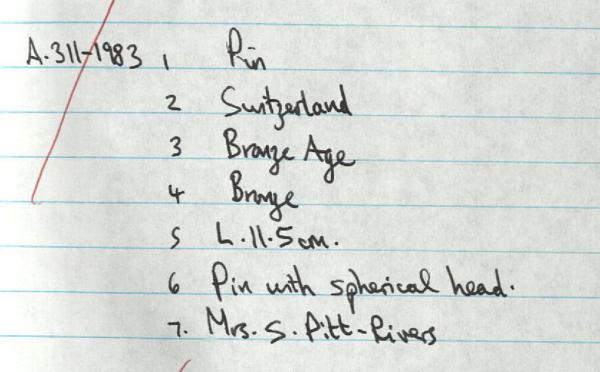 A.311-1983 1 Pin
2 Switzerland
3 Bronze Age
4 Bronze
5 L.11.5cm.
6 Pin with spherical head.
7. Mrs. S. Pitt-Rivers